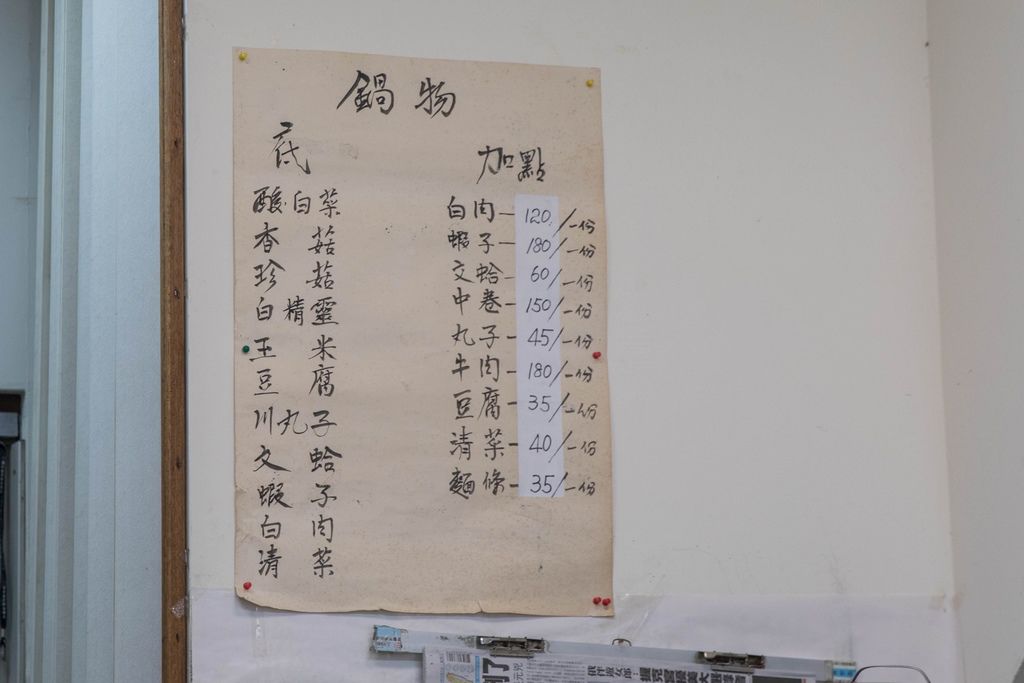 鍋物
底
酸白菜
香菇
珍菇
白精靈
玉米
豆腐
川丸子
文蛤
蝦子
白肉
清菜
加點
白肉-120/一份
蝦子-180/一份
文蛤-60/一份
中卷-150/一份
丸子-45/一份
牛肉-180/一份
豆腐-35/一份
清菜-40/一份
麵條-35/一份